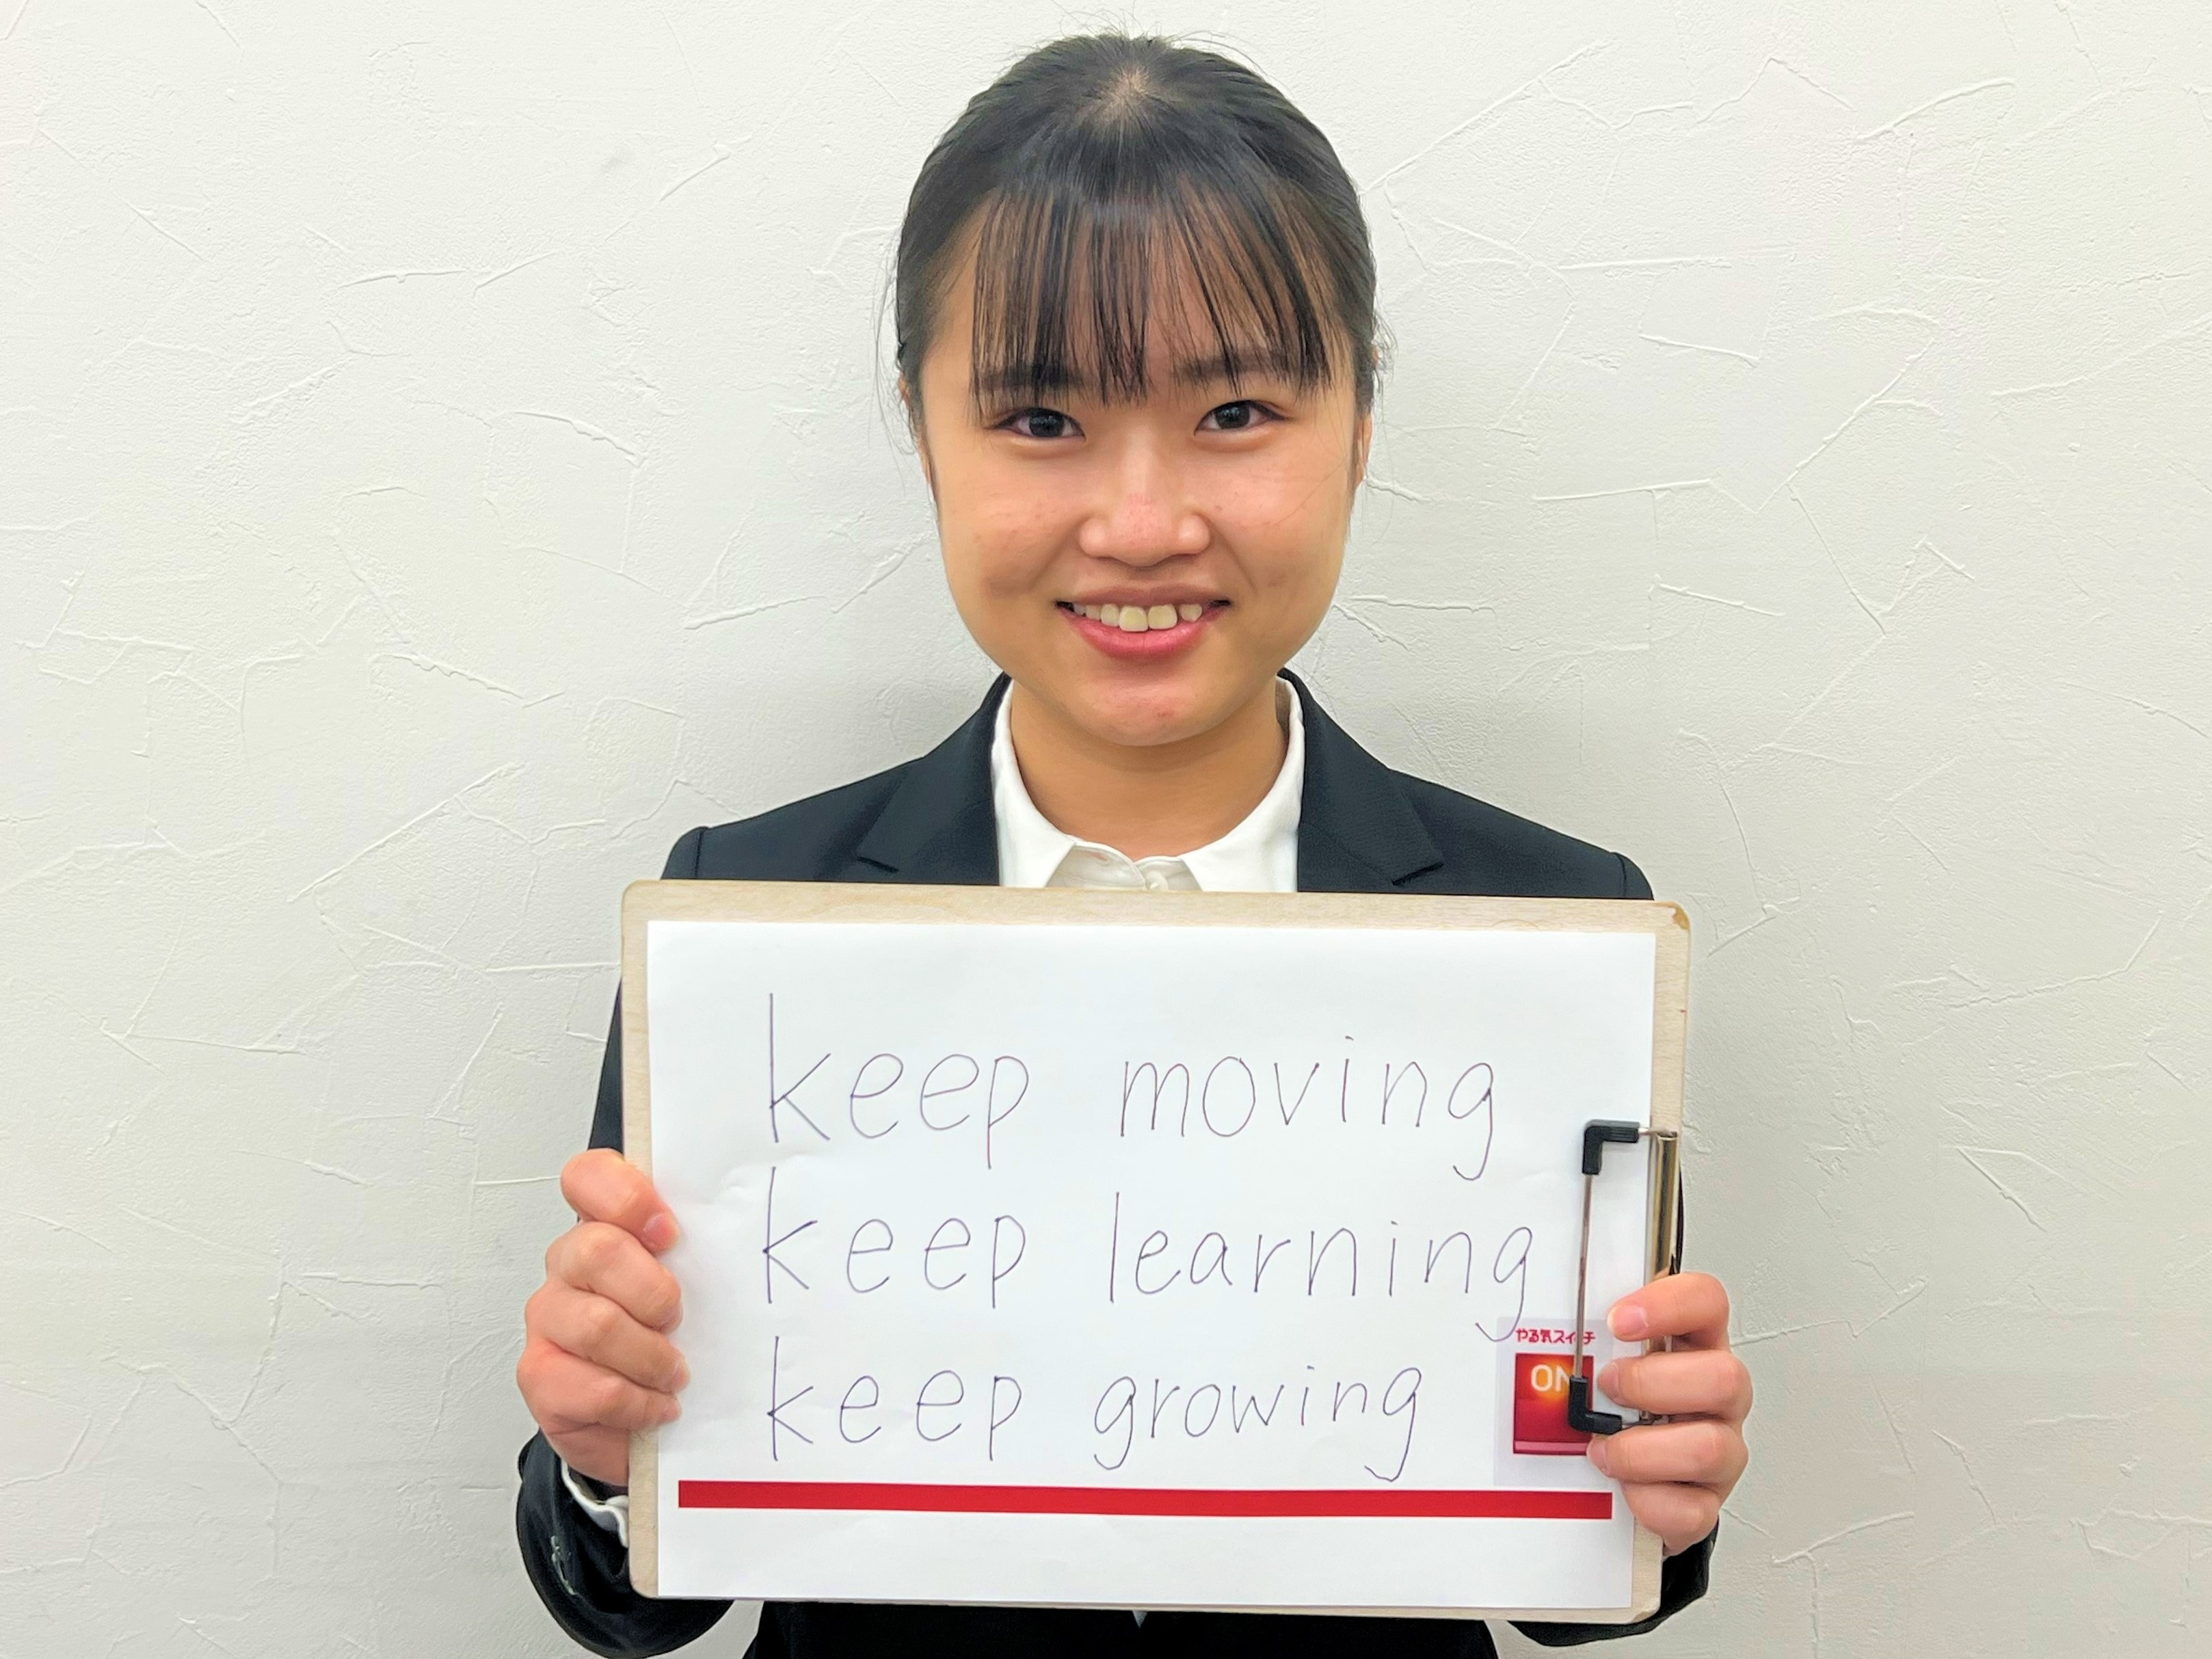 keep moving
keep learning
keep growing
やる気スイッチ
ON